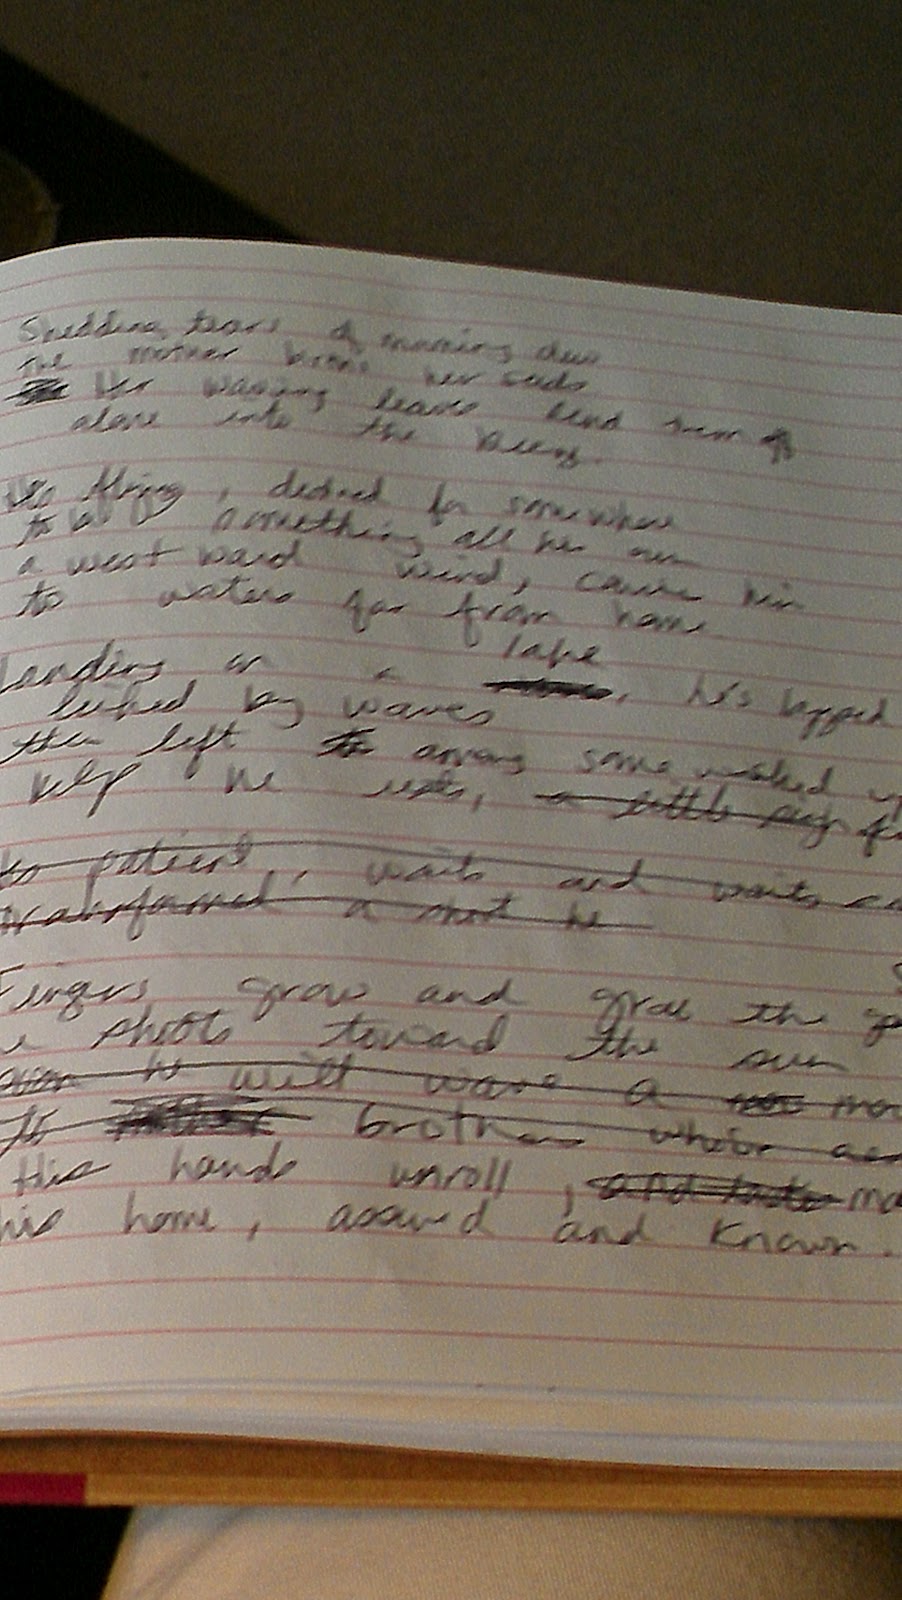 Shedding tears of morning dew
The mother births her seeds
Her waving leaves send them off
alone into the
flying, destined for somewhere
to be something all his own
a west ward wind, carries him
to waters far from home
lake
Landing on a , he's
licked by waves
then left among some washed up
kelp he rests,
patient, waits and waits
transformed a
Fingers grow and grab the
he shoots toward the sun
he will wave a
brothers
His hands unroll,
his home, assured and known.